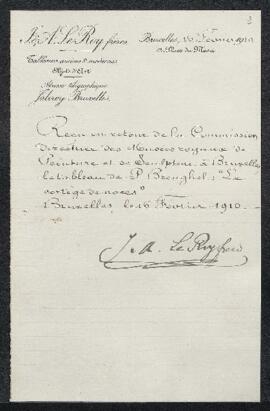 3
J. & A. Le Roy, frères
Bruxelles, 16 Février 1910
Tableaux anciens & modernes
Objets d'Art
Adresse télégraphique
Bruxelles
Recu en retour de la Commission
directrice des Musées royaux de
Peinture et de Sculpture à Bruxelles
le tableau de P. Breughel: "Le
cortège de noces"
Bruxelles, le 16 Février 1910.
J. & A. Le Roy frères